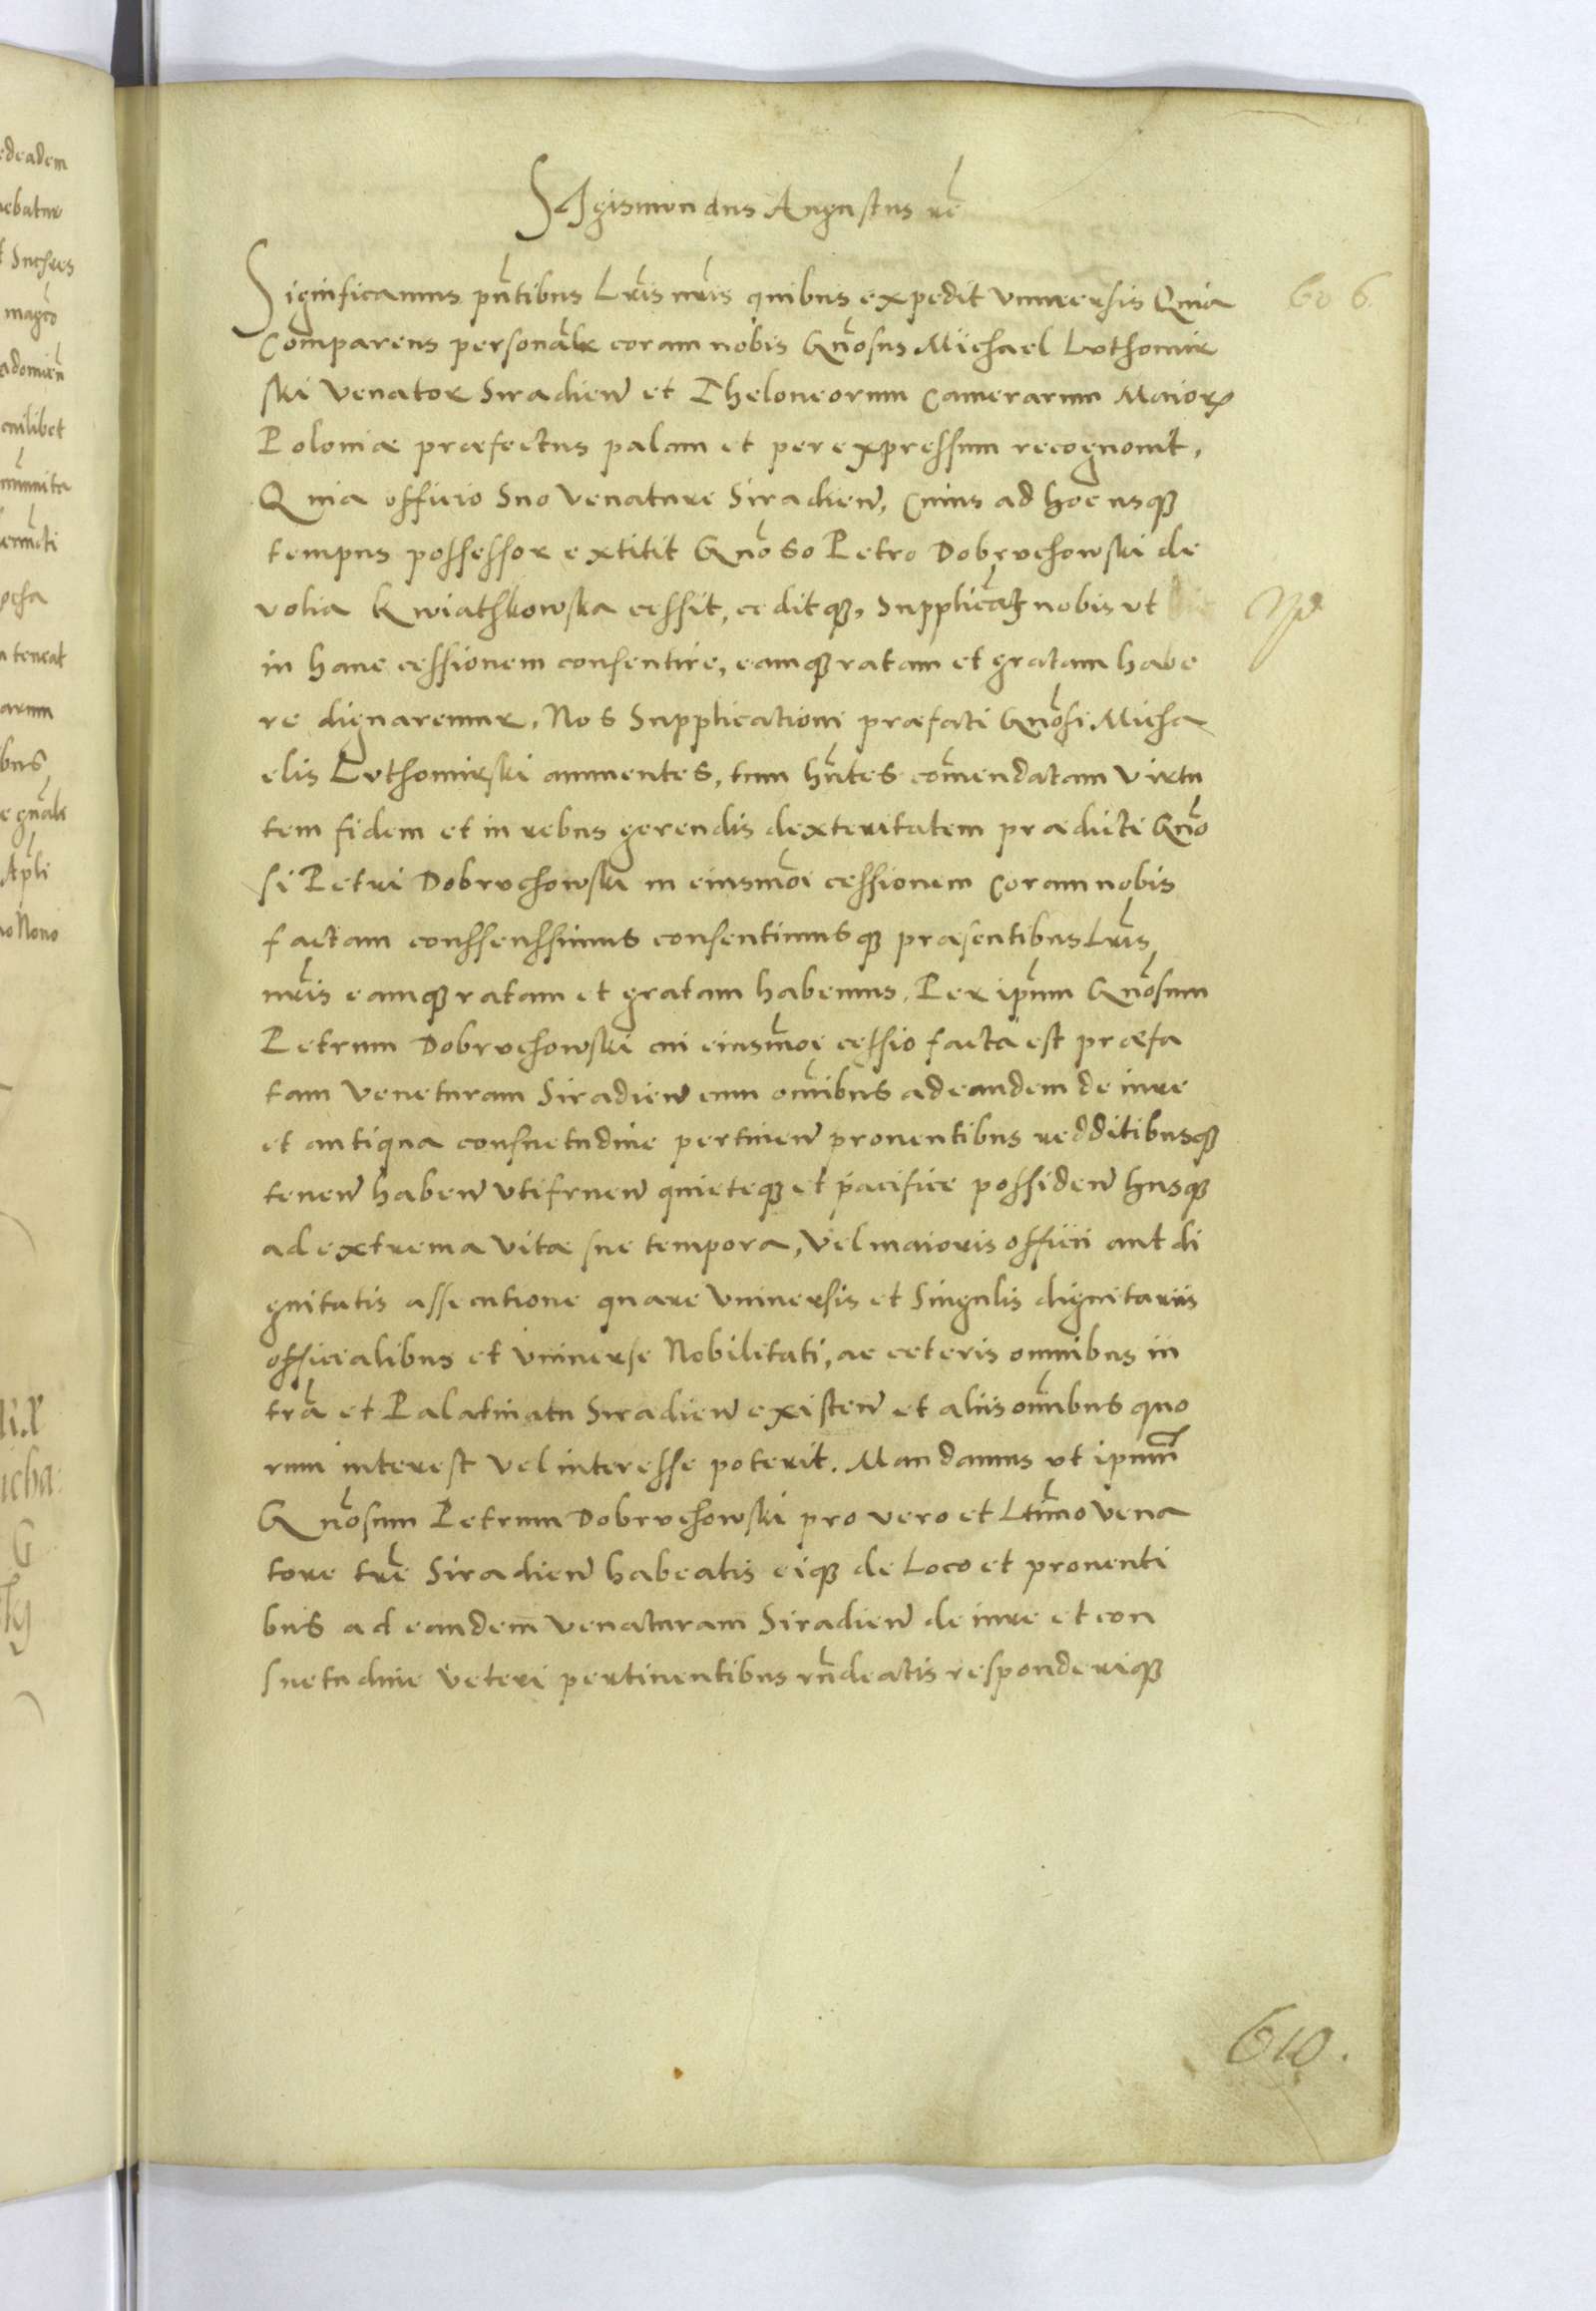 Sigismundus Augustus rē
Significamus pn̄tibus Lr̄is nr̄is quibus expedit vniuersis Quia
Comparens personalr coram nobis Gn̄osus Michael Lvthomir
ski Venator Siradien̄ et Theloneorum Camerarum Maiorꝝ
Poloniæ præfectus palam et per expressum recognouit,
Quia officio Suo Venature Siradien̄, Cuius ad hoc usqꝫ
tempus possessor extitit Gn̄oso Petro Dobrvchowski de
volia Kwiathkowska cessit, ceditqꝫ, Supplicātqꝫ nobis vt
in hanc cessionem consentire, eamqꝫ ratam et gratam habe
re dignaremur, Nos Supplicationi præfati Gn̄osi Micha
elis Lvthomirski annuentes, tum hn̄tes com̄endatam virtu
tem fidem et in rebus gerendis dexteritatem prædicti Gn̄o
si Petri Dobrvchowski in eiusmōi cessionem coram nobis
factam conssenssimus consentimusqꝫ præsentibus Lr̄is
nr̄is eamqꝫ ratam et gratam habemus. Per ipsum Gn̄osum
Petrum Dobrvchowski cui eiusmōi cessio facta est præfa
tam Veneturam Siradien̄ cum om̄ibus ad eandem de iure
et antiqua consuetudine pertinen̄ prouentibus redditibusqꝫ
tenen̄ haben̄ vtifruen̄ quieteqꝫ et pacifice possiden̄ husqꝫ
ad extrema vitæ sue tempora, Vel maioris officii aut di
gnitatis assecutione quare Vniuersis et Singulis dignitariis
officialibus et vniuerse Nobilitati, ac ceteris omnibus in
trā et Palatinatu Siradien̄ existen̄ et aliis om̄ibus quo
rum interest vel interesse poterit. Mandamus vt ipsum
Gn̄osum Petrum Dobrvchowski pro vero et Ltīmo Vena
tore tr̄e Siradien̄ habeatis eiqꝫ de Loco et prouenti
bus ad eandem venaturam Siradien̄ de iure et con
suetudine veteri pertinentibus rn̄deatis responderiqꝫ
606.
610.